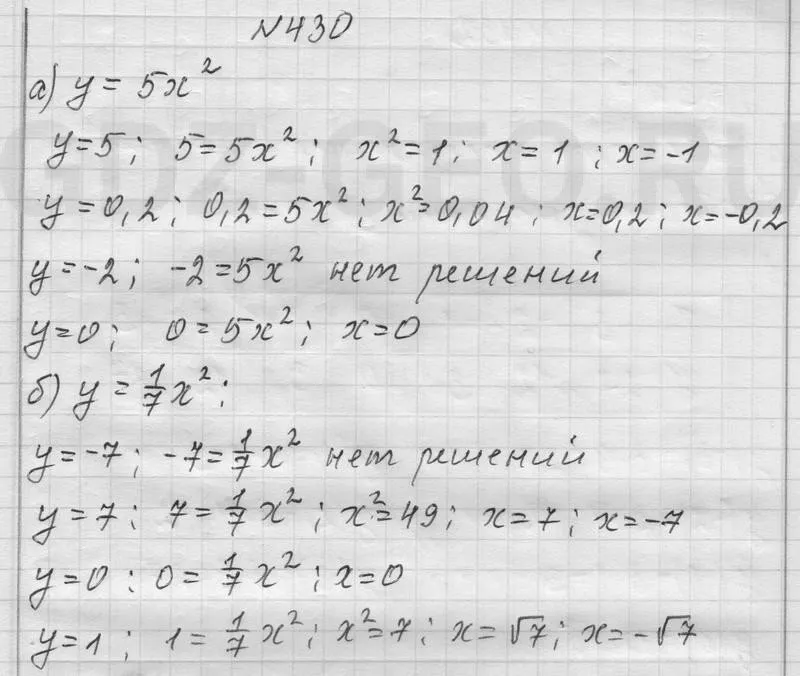 N430
а) y = 5x²
y=5; 5=5x²; x²=1; x=1; x=-1
y=0,2; 0,2=5x²; x²=0,04; x=0,2; x=-0,2
y=-2; -2=5x² нет решений
y=0; 0=5x²; x=0
б) y=1/7x²;
y=-7; -7=1/7x² нет решений
y=7; 7=1/7x²; x²=49; x=7; x=-7
y=0; 0=1/7x²; x=0
y=1; 1=1/7x²; x²=7; x=√7; x=-√7